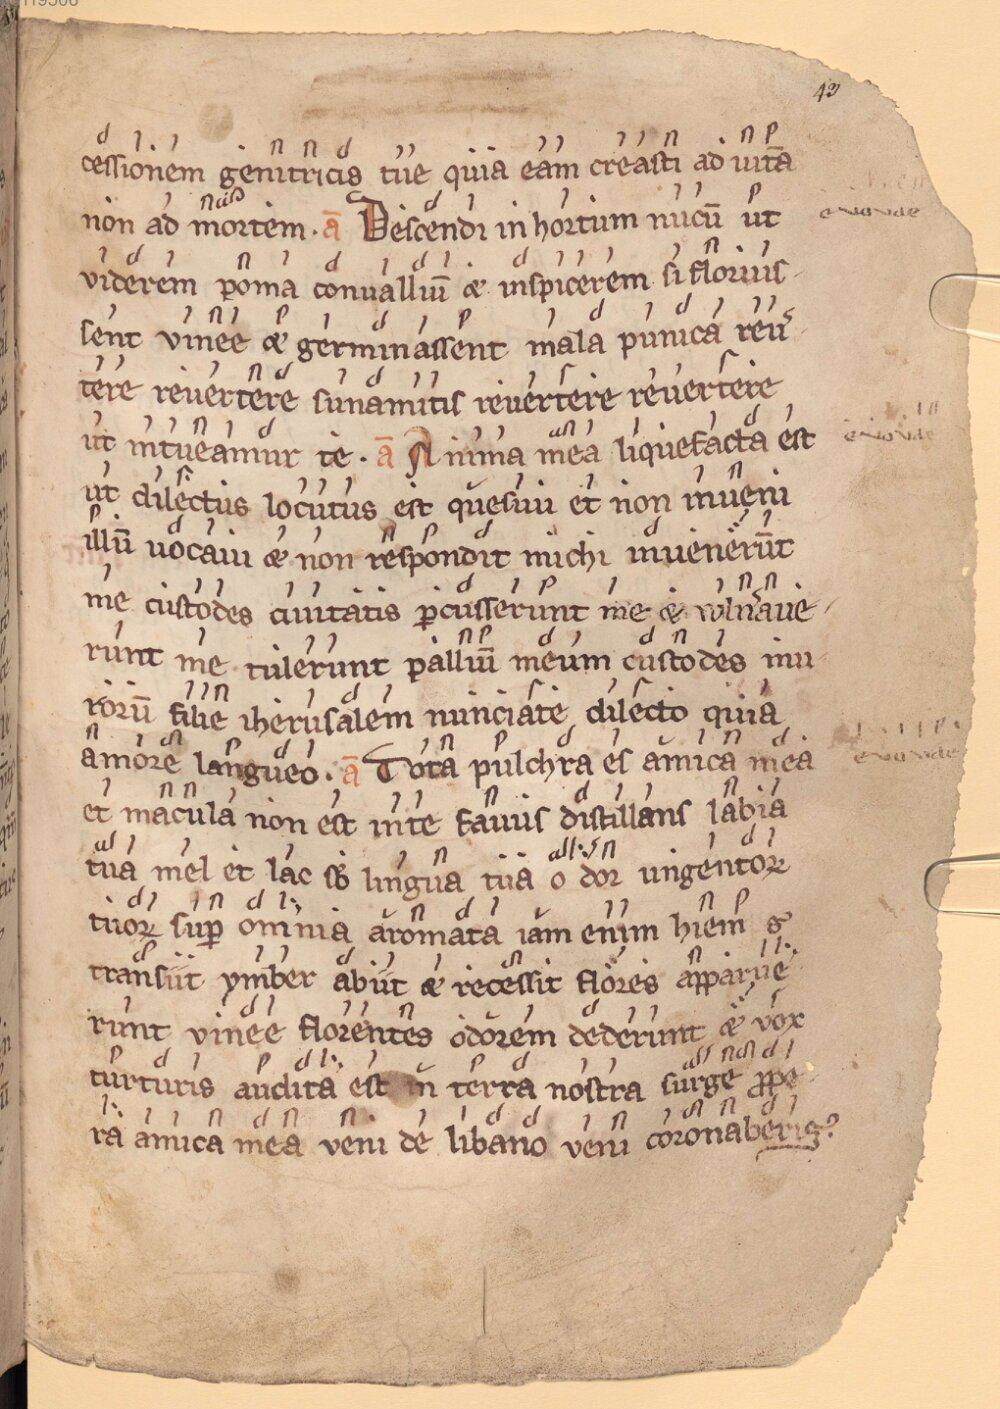 43
cessionem genitricis tue quia eam creasti ad uitā
non ad mortem. ā Descendi in hortum nucū ut
euouae
viderem poma conuulliū æ inspicerem si floruis
sent vinee æ germinassent mala punica reu
tere reuertere sunamitis reuertere reuertere
ut intueamur te. ā Anima mea liquefacta est
euouae
ut dilectus locutus est quesiui et non inueni
illū uocaui æ non respondit michi inuenerūt
me custodes ciuitatis pcusserunt me æ uolnaue
runt me tulerunt palliū meum custodes mu
rorū filie iherusalem nunciate dilecto quia
amore langueo. ā Tota pulchra es amica mea
euouae
et macula non est in te fauus distillans labia
tua mel et lac sb lingua tua odor ungentoꝝ
tuoꝝ sup omnia aromata iam enim hiems
transiit ymber abiit æ recessit flores apparue
runt vinee florentes odorem dederunt æ vox
turturis audita est in terra nostra surge ppe
ra amica mea veni de libano veni coronaberis